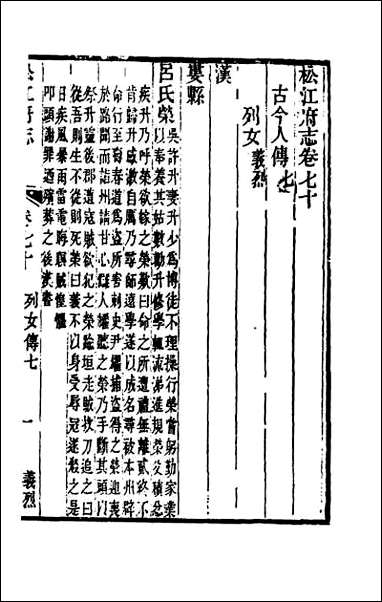 松江府志卷七十
古今人傳七
列女 義烈
漢
婁縣
呂氏榮 吳許升妻升少爲博徒不理操行榮嘗躬勤家業
以奉養其姑數勸升修學輒流涕進規榮父積忿
疾升乃呼榮欲嫁之榮歎曰命之所遭禮無離貳終不
肯歸升感激自厲乃尋師遠學遂以成名尋被本州辟
命行至壽春道爲盜所害刺史尹耀捕盜得之榮迎喪
於路聞而詣州請甘心讎人耀聽之榮乃手斷其頭以
祭升靈後郡遭寇賊欲犯之榮踰垣走賊拔刀追之曰
從吾則生不從則死榮曰義不以身受辱寇遂殺之是
日疾風暴雨雷電晦冥賊惶懼
叩頭謝罪迺殯葬之後漢書
松江府志
卷七十 列女傳七
一
義烈